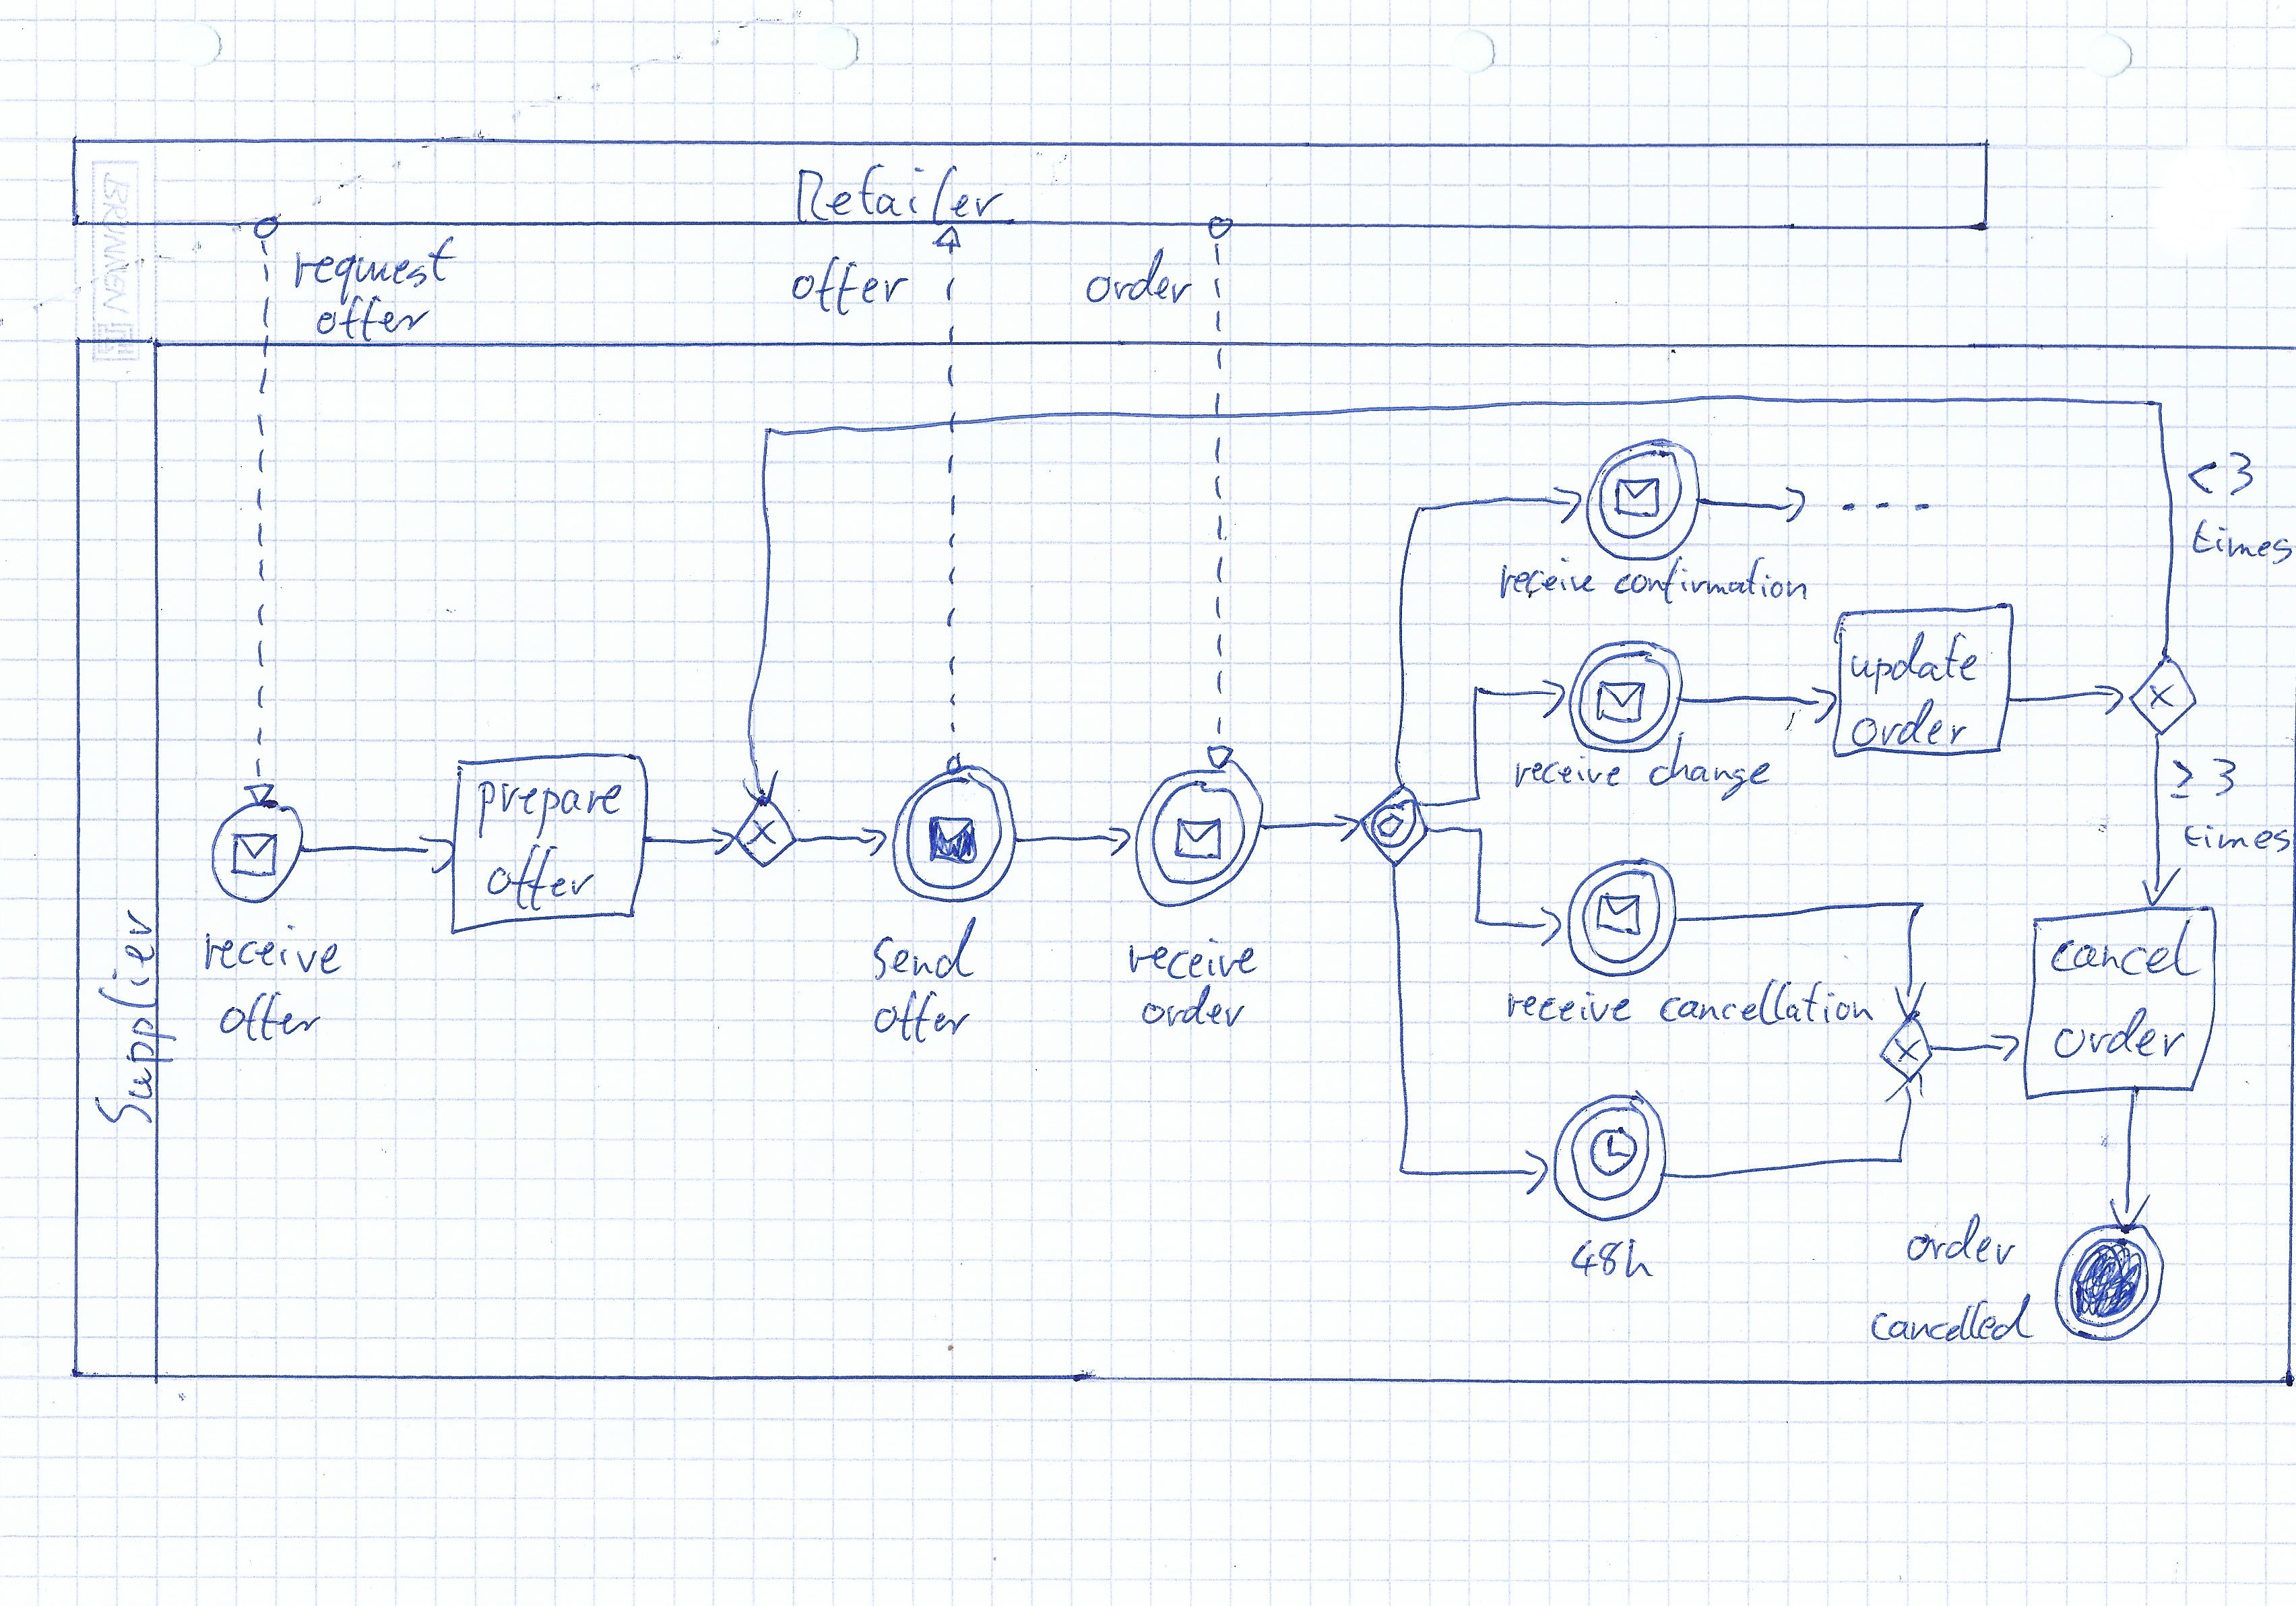 Retailer
request
offer
offer
order
Supplier
receive
offer
prepare
offer
send
offer
receive
order
receive confirmation
...
receive change
update
order
< 3
times
≥ 3
times
receive cancellation
48h
cancel
order
order
cancelled
BRUNNEN